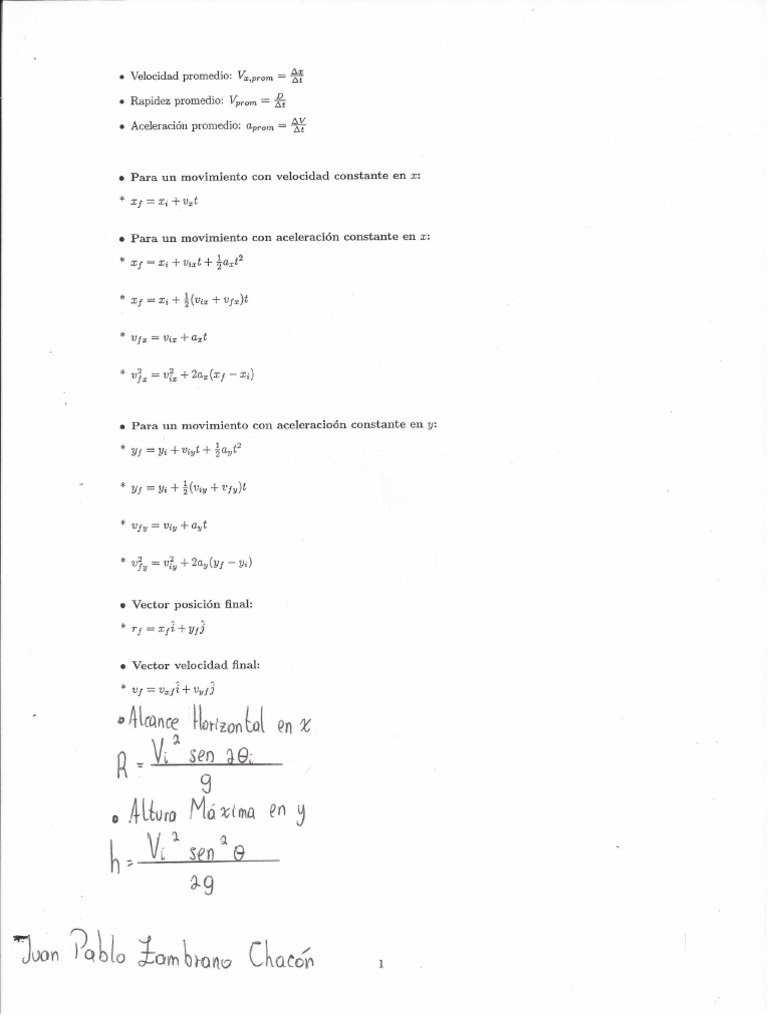 • Velocidad promedio: V_{x,prom} = Δx/Δt
• Rapidez promedio: V_{prom} = D/Δt
• Aceleración promedio: a_{prom} = ΔV/Δt
• Para un movimiento con velocidad constante en x:
* x_f = x_i + v_x t
• Para un movimiento con aceleración constante en x:
* x_f = x_i + v_{ix}t + ½a_x t²
* x_f = x_i + ½(v_{ix} + v_{fx})t
* v_{fx} = v_{ix} + a_x t
* v²_{fx} = v²_{ix} + 2a_x(x_f − x_i)
• Para un movimiento con aceleracioón constante en y:
* y_f = y_i + v_{iy}t + ½a_y t²
* y_f = y_i + ½(v_{iy} + v_{fy})t
* v_{fy} = v_{iy} + a_y t
* v²_{fy} = v²_{iy} + 2a_y(y_f − y_i)
• Vector posición final:
* r_f = x_f î + y_f ĵ
• Vector velocidad final:
* v_f = v_{xf} î + v_{yf} ĵ
• Alcance Horizontal en x
R = Vi² sen 2θi / g
• Altura Máxima en y
h = Vi² sen² θ / 2g
Juan Pablo Zambrano Chacón
1